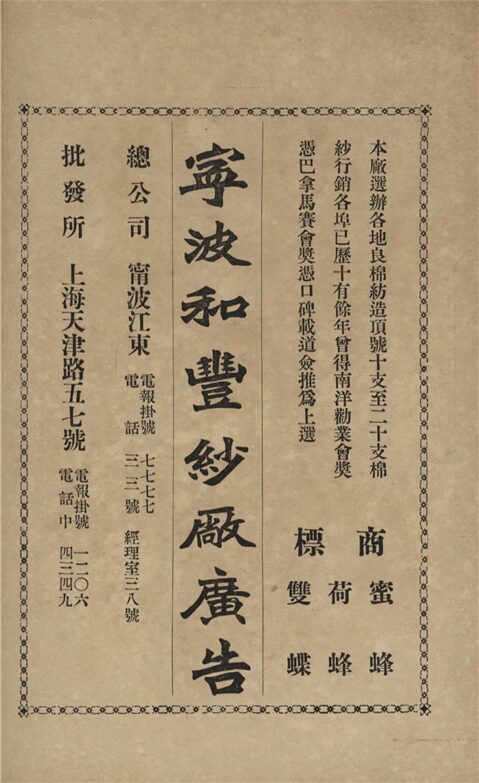 本廠選辦各地良棉紡造頂號十支至二十支棉
紗行銷各埠已歷十有餘年曾得南洋勸業會獎
憑巴拿馬賽會獎憑口碑載道僉推爲上選
商標
蜜蜂
荷蜂
雙蝶
寧波和豐紗廠廣告
總公司 甯波江東 電報掛號 七七七七
電話 三三號 經理室三八號
批發所 上海天津路五七號 電報掛號 一二〇六
電話中 四三四九